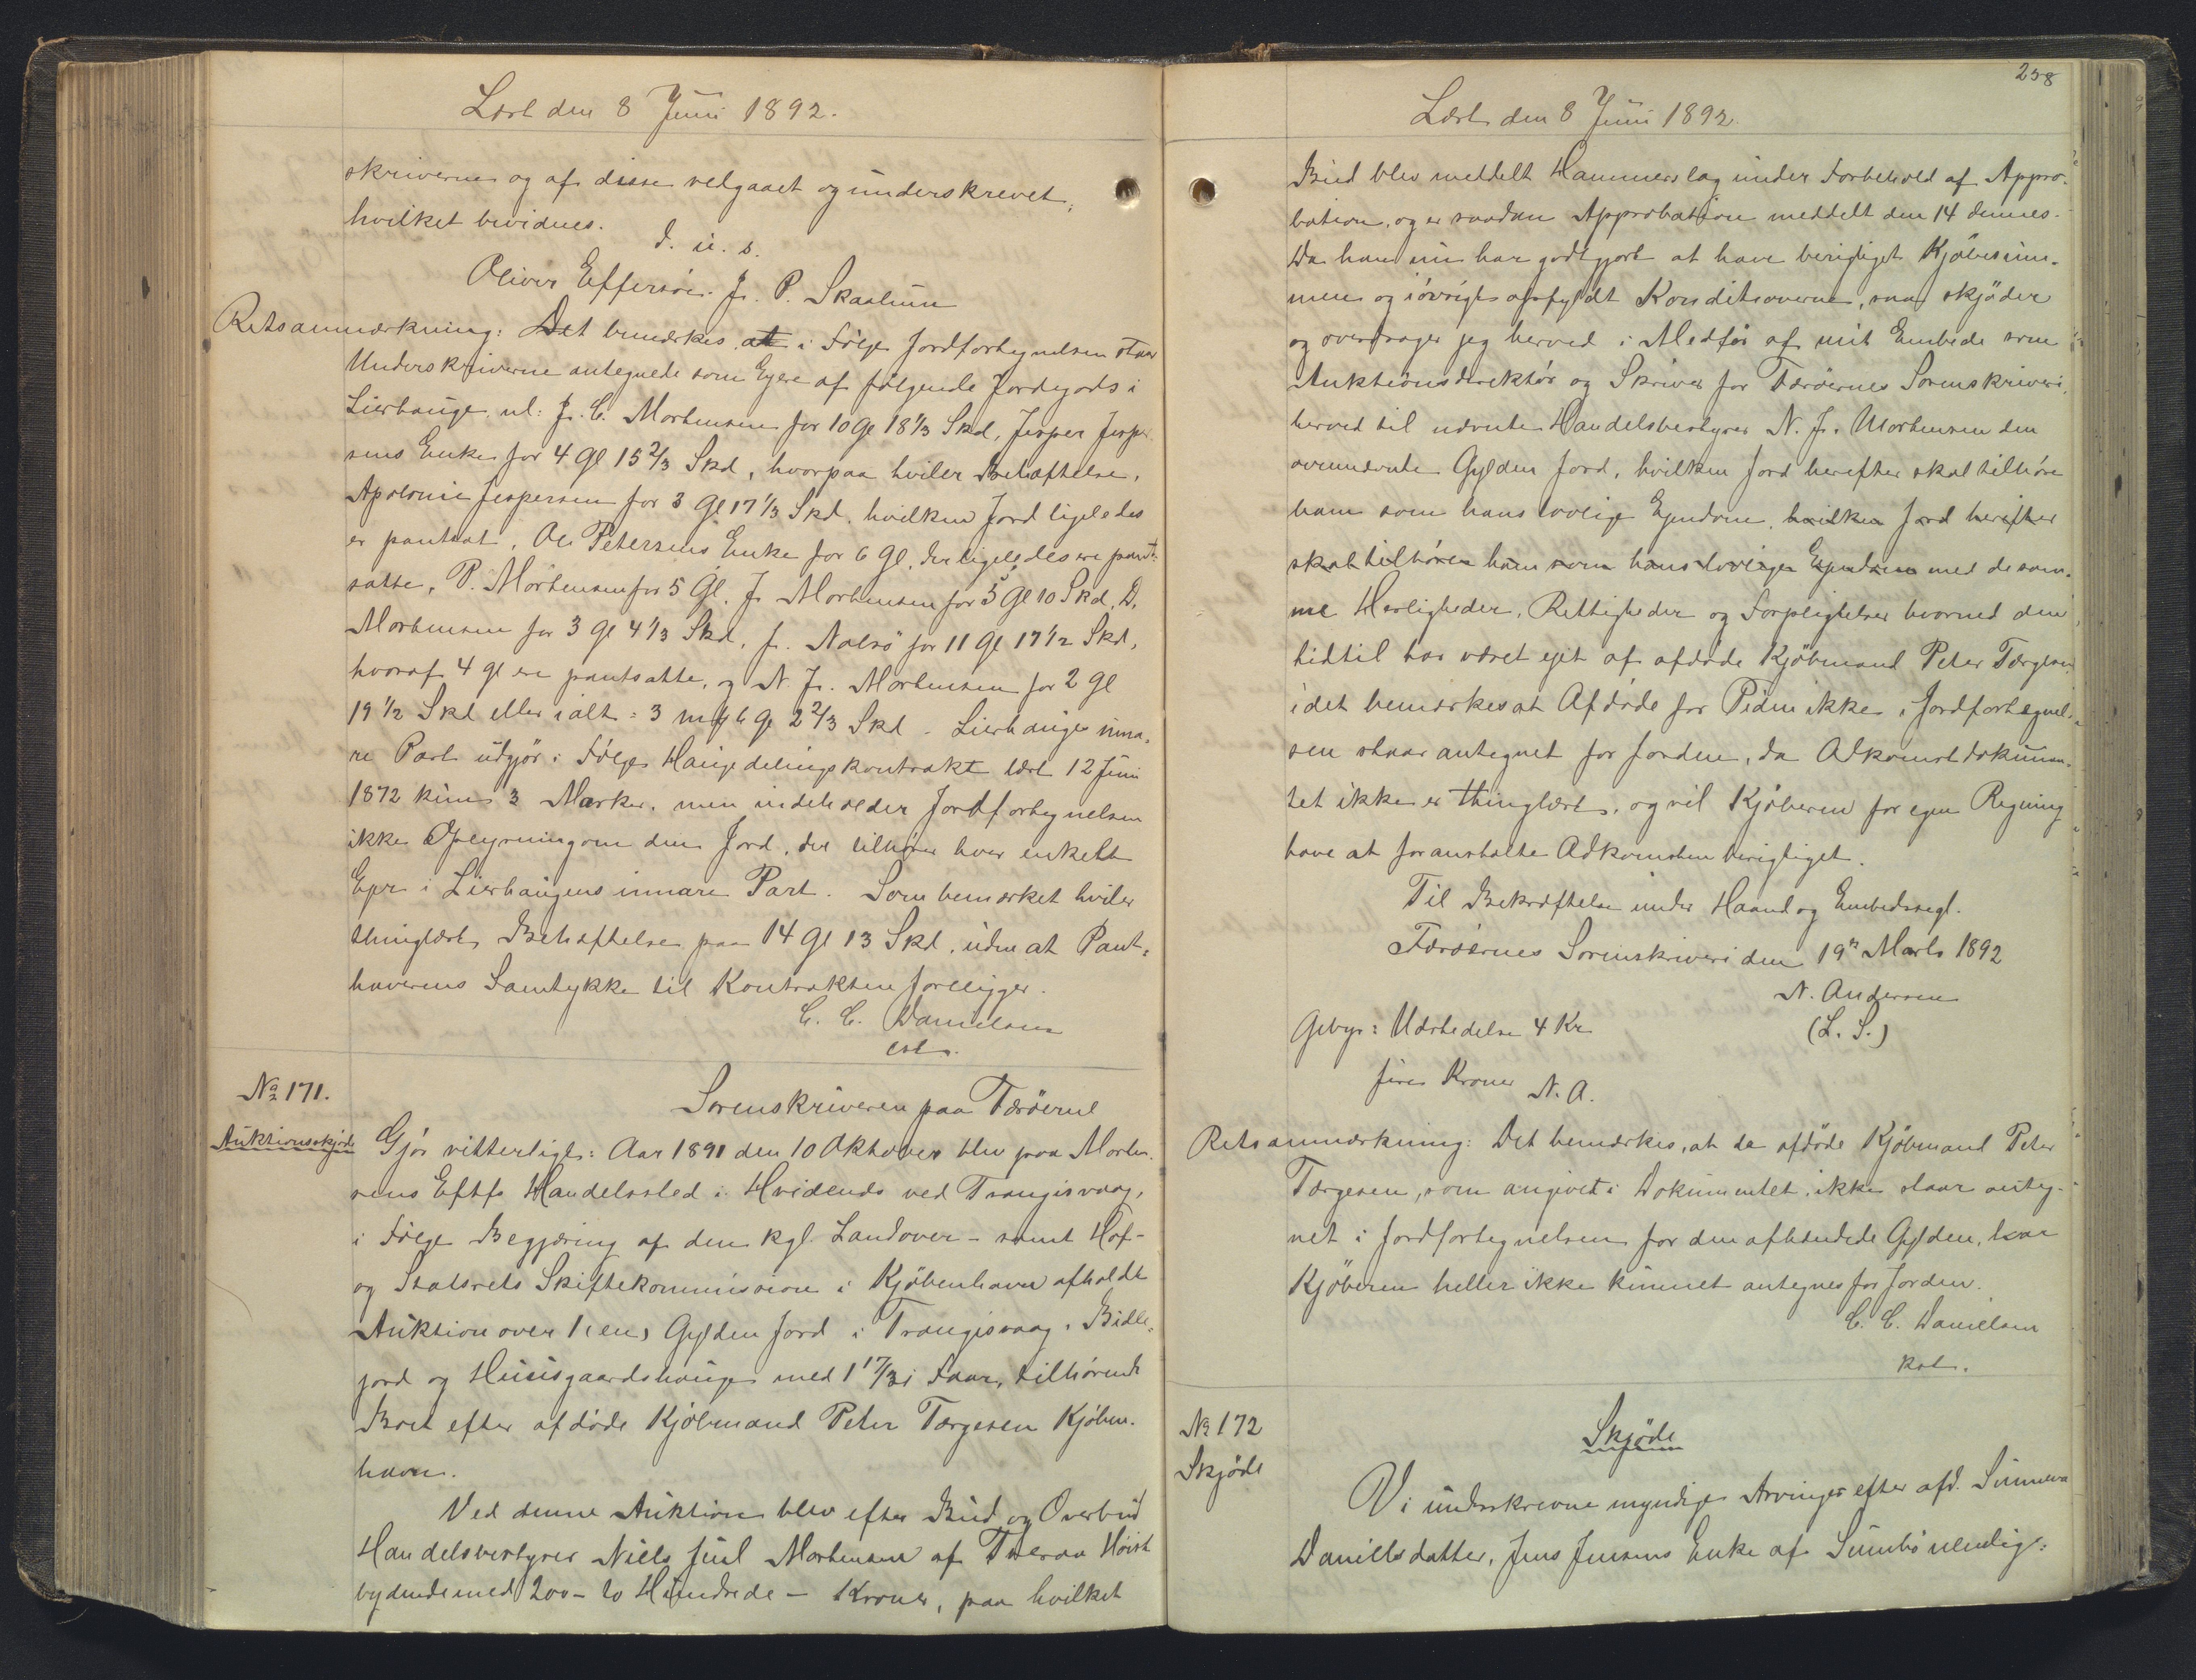 Læst den 8 Juni 1892.
skriverne og af disse vedgaaet og underskrevet,
hvilket bevidnes.
d. u. s.
Oliver Effersøe. J. P. Skaalum
Retsanmærkning: Det bemærkes at i Følge Jordfortegnelsen staar
Underskriverne antegnede som Ejere af følgende Jordegods i
Lierhauge, nl: J. C. Mortensen for 10 Gl 18 1/3 Skd, Jesper Jesper
sens Enke for 4 Gl 15 2/3 Skd, hvorpaa hviler Behæftelse,
Apolonie Jespersen for 3 Gl 17 1/3 Skd, hvilken Jord ligeledes
er pantsat, Ole Petersens Enke for 6 Gl, der ligeledes ere pant-
satte, P. Mortensen for 5 Gl, J. Mortensen for 5 Gl 10 Skd, D.
Mortensen for 3 Gl 4 1/3 Skd, J. Nolsø for 11 Gl 17 1/2 Skd,
hvoraf 4 Gl ere pantsatte, og N. J. Mortensen for 2 Gl
19 1/2 Skd eller ialt = 3 mk 6 Gl 2 2/3 Skd. Lierhauges inna-
re Part udgjør i Følge Haugedelingskontrakt læst 12 Juni
1872 kun 3 Marker, men indeholder Jordfortegnelsen
ikke Oplysning om den Jord, der tilhører hver enkelt
Ejer i Lierhaugens innare Part. Som bemærket hviler
thinglæst Behæftelse paa 14 Gl 13 Skd, uden at Pant-
haverens Samtykke til Kontrakten foreligger.
C. C. Danielsen
cst.
No 171.
Auktionsskjøde
Sorenskriveren paa Færøerne
Gjør vitterligt: Aar 1891 den 10 Oktober blev paa Morten-
sens Eftfs Handelssted i Hvidenæs ved Trangisvaag,
i Følge Begjæring af den kgl. Landover- samt Hof-
og Stadsrets Skiftekommission i Kjøbenhavn afholdt
Auktion over 1 (en) Gylden Jord i Trangisvaag, Bidle-
jord og Huusgaardshauge med 1 17/31 Faar, tilhørende
Boet efter afdøde Kjøbmand Peter Tærgesen Kjøben-
havn.
Ved denne Auktion blev efter Bud og Overbud
Handelsbestyrer Niels Juul Mortensen af Tveraa Høist
bydende med 200 - to Hundrede - Kroner, paa hvilket
238
Læst den 8 Juni 1892.
Bud blev meddelt Hammerslag under Forbehold af Appro-
bation, og er saadan Approbation meddelt den 14 dennes.
Da han nu har godtgjort at have berigtiget Kjøbesum-
men og iøvrigt opfyldt Konditionerne, saa skjøder
og overdrager jeg herved i Medfør af mit Embede som
Auktionsdirektør og Skriver for Færøernes Sorenskriveri,
herved til nævnte Handelsbestyrer N. J. Mortensen den
ovennævnte Gylden Jord, hvilken Jord herefter skal tilhøre
ham som hans lovlige Ejendom, hvilken Jord herefter
skal tilhøre ham som hans lovlige Ejendom med de sam-
me Herligheder, Rettigheder og Forpligtelser hvormed den
hidtil har været ejet af afdøde Kjøbmand Peter Tærgesen
idet bemærkes at Afdøde for Tiden ikke i Jordfortegnel-
sen staar antegnet for Jorden, da Adkomstdokumen-
tet ikke er thinglæst, og vil Kjøberen for egen Regning
have at foranstalte Adkomsten berigtiget.
Til Bekræftelse under Haand og Embedssegl.
Færøernes Sorenskriveri den 19n Marts 1892
N. Andersen
(L. S.)
Gebyr: Udstedelse 4 Kr
fire Kroner N. A.
Retsanmærkning: Det bemærkes, at da afdøde Kjøbmand Peter
Tærgesen, som angivet i Dokumentet, ikke staar anteg-
net i Jordfortegnelsen for den afhændede Gylden, har
Kjøberen heller ikke kunnet antegnes for Jorden.
C. C. Danielsen
kst.
No 172
Skjøde
Skjøde
Vi underskrevne myndige Arvinger efter afd. Sunneva
Danielsdatter, Jens Jensens Enke af Sumbø nemlig: